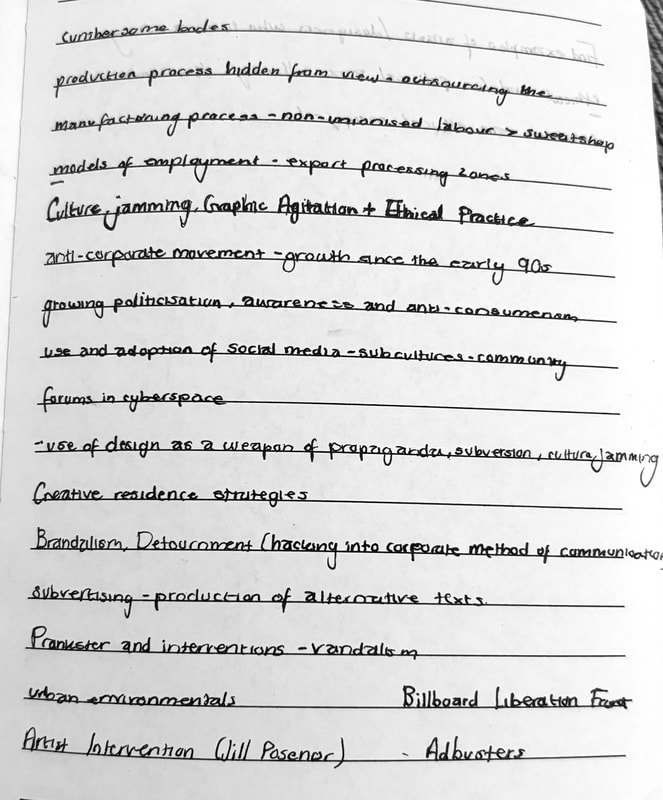 cumbersome bodes
production process hidden from view - outsourcing the
manufactoring process - non-unionised labour > sweatshop
models of employment - export processing zones
Culture, jamming, Graphic Agitation + Ethical Practice
anti-corporate movement - growth since the early 90s
growing politicisation, awareness and anti-consumerism
use and adoption of social media - subcultures - community
forums in cyberspace
- use of design as a weapon of propaganda, subversion, culture jamming
Creative residence strategies
Brandalism, Detournment (hacking into corporate method of communication
subvertising - production of alternative texts.
Prankster and interventions - vandalism
urban environmentals Billboard Liberation
Artist Intervention (Jill Posenor) - Adbusters